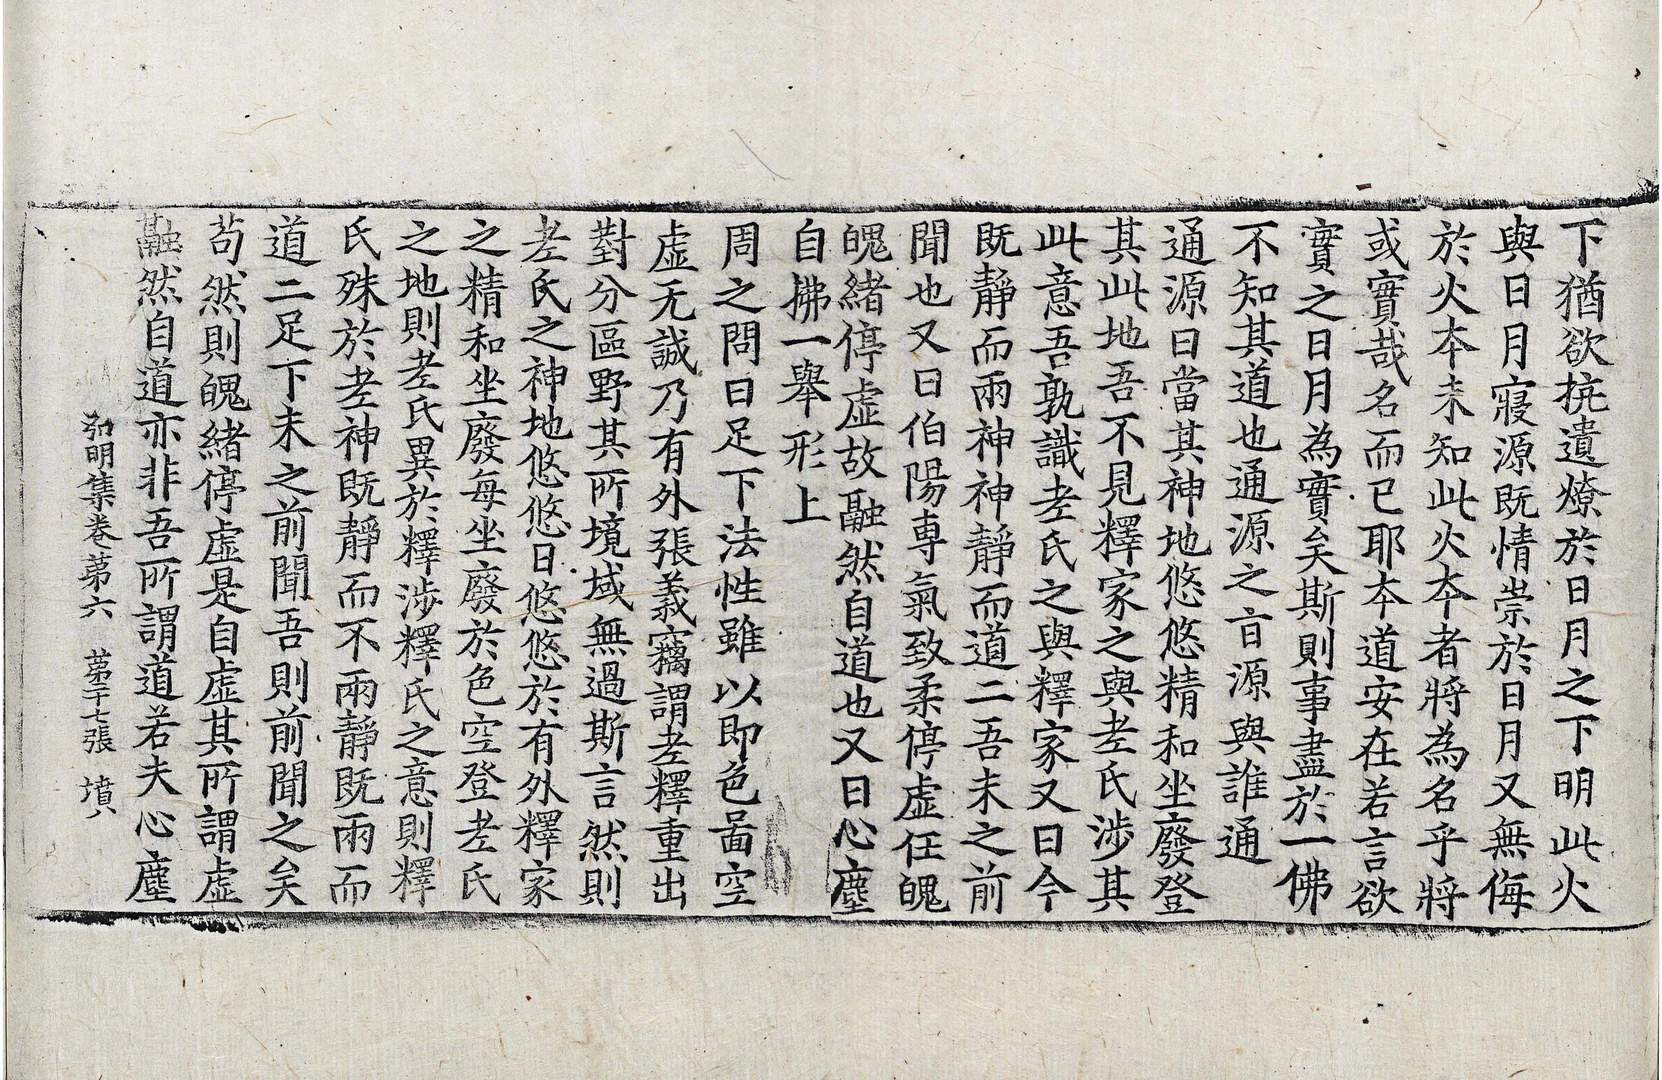 下猶欲抗遺燎於日月之下明此火
與日月寢源既情崇於日月又無侮
於火本未知此火本者將為名乎將
或實哉名而已耶本道安在若言欲
實之日月為實矣斯則事盡於一佛
不知其道也通源之言源與誰通
通源曰當其神地悠悠精和坐廢登
其此地吾不見釋家之與老氏涉其
此意吾孰識老氏之與釋家又曰今
既靜而兩神神靜而道二吾未之前
聞也又曰伯陽專氣致柔停虛任魄
魄緒停虛故融然自道也又曰心塵
自拂一舉形上
周之問曰足下法性雖以即色啚空
虛无誠乃有外張義竊謂老釋重出
對分區野其所境域無過斯言然則
老氏之神地悠悠日悠悠於有外釋家
之精和坐廢每坐廢於色空登老氏
之地則老氏異於釋涉釋氏之意則釋
氏殊於老神既靜而不兩靜既兩而
道二足下未之前聞吾則前聞之矣
苟然則魄緒停虛是自虛其所謂虛
融然自道亦非吾所謂道若夫心塵
弘明集卷第六 第十七張 墳